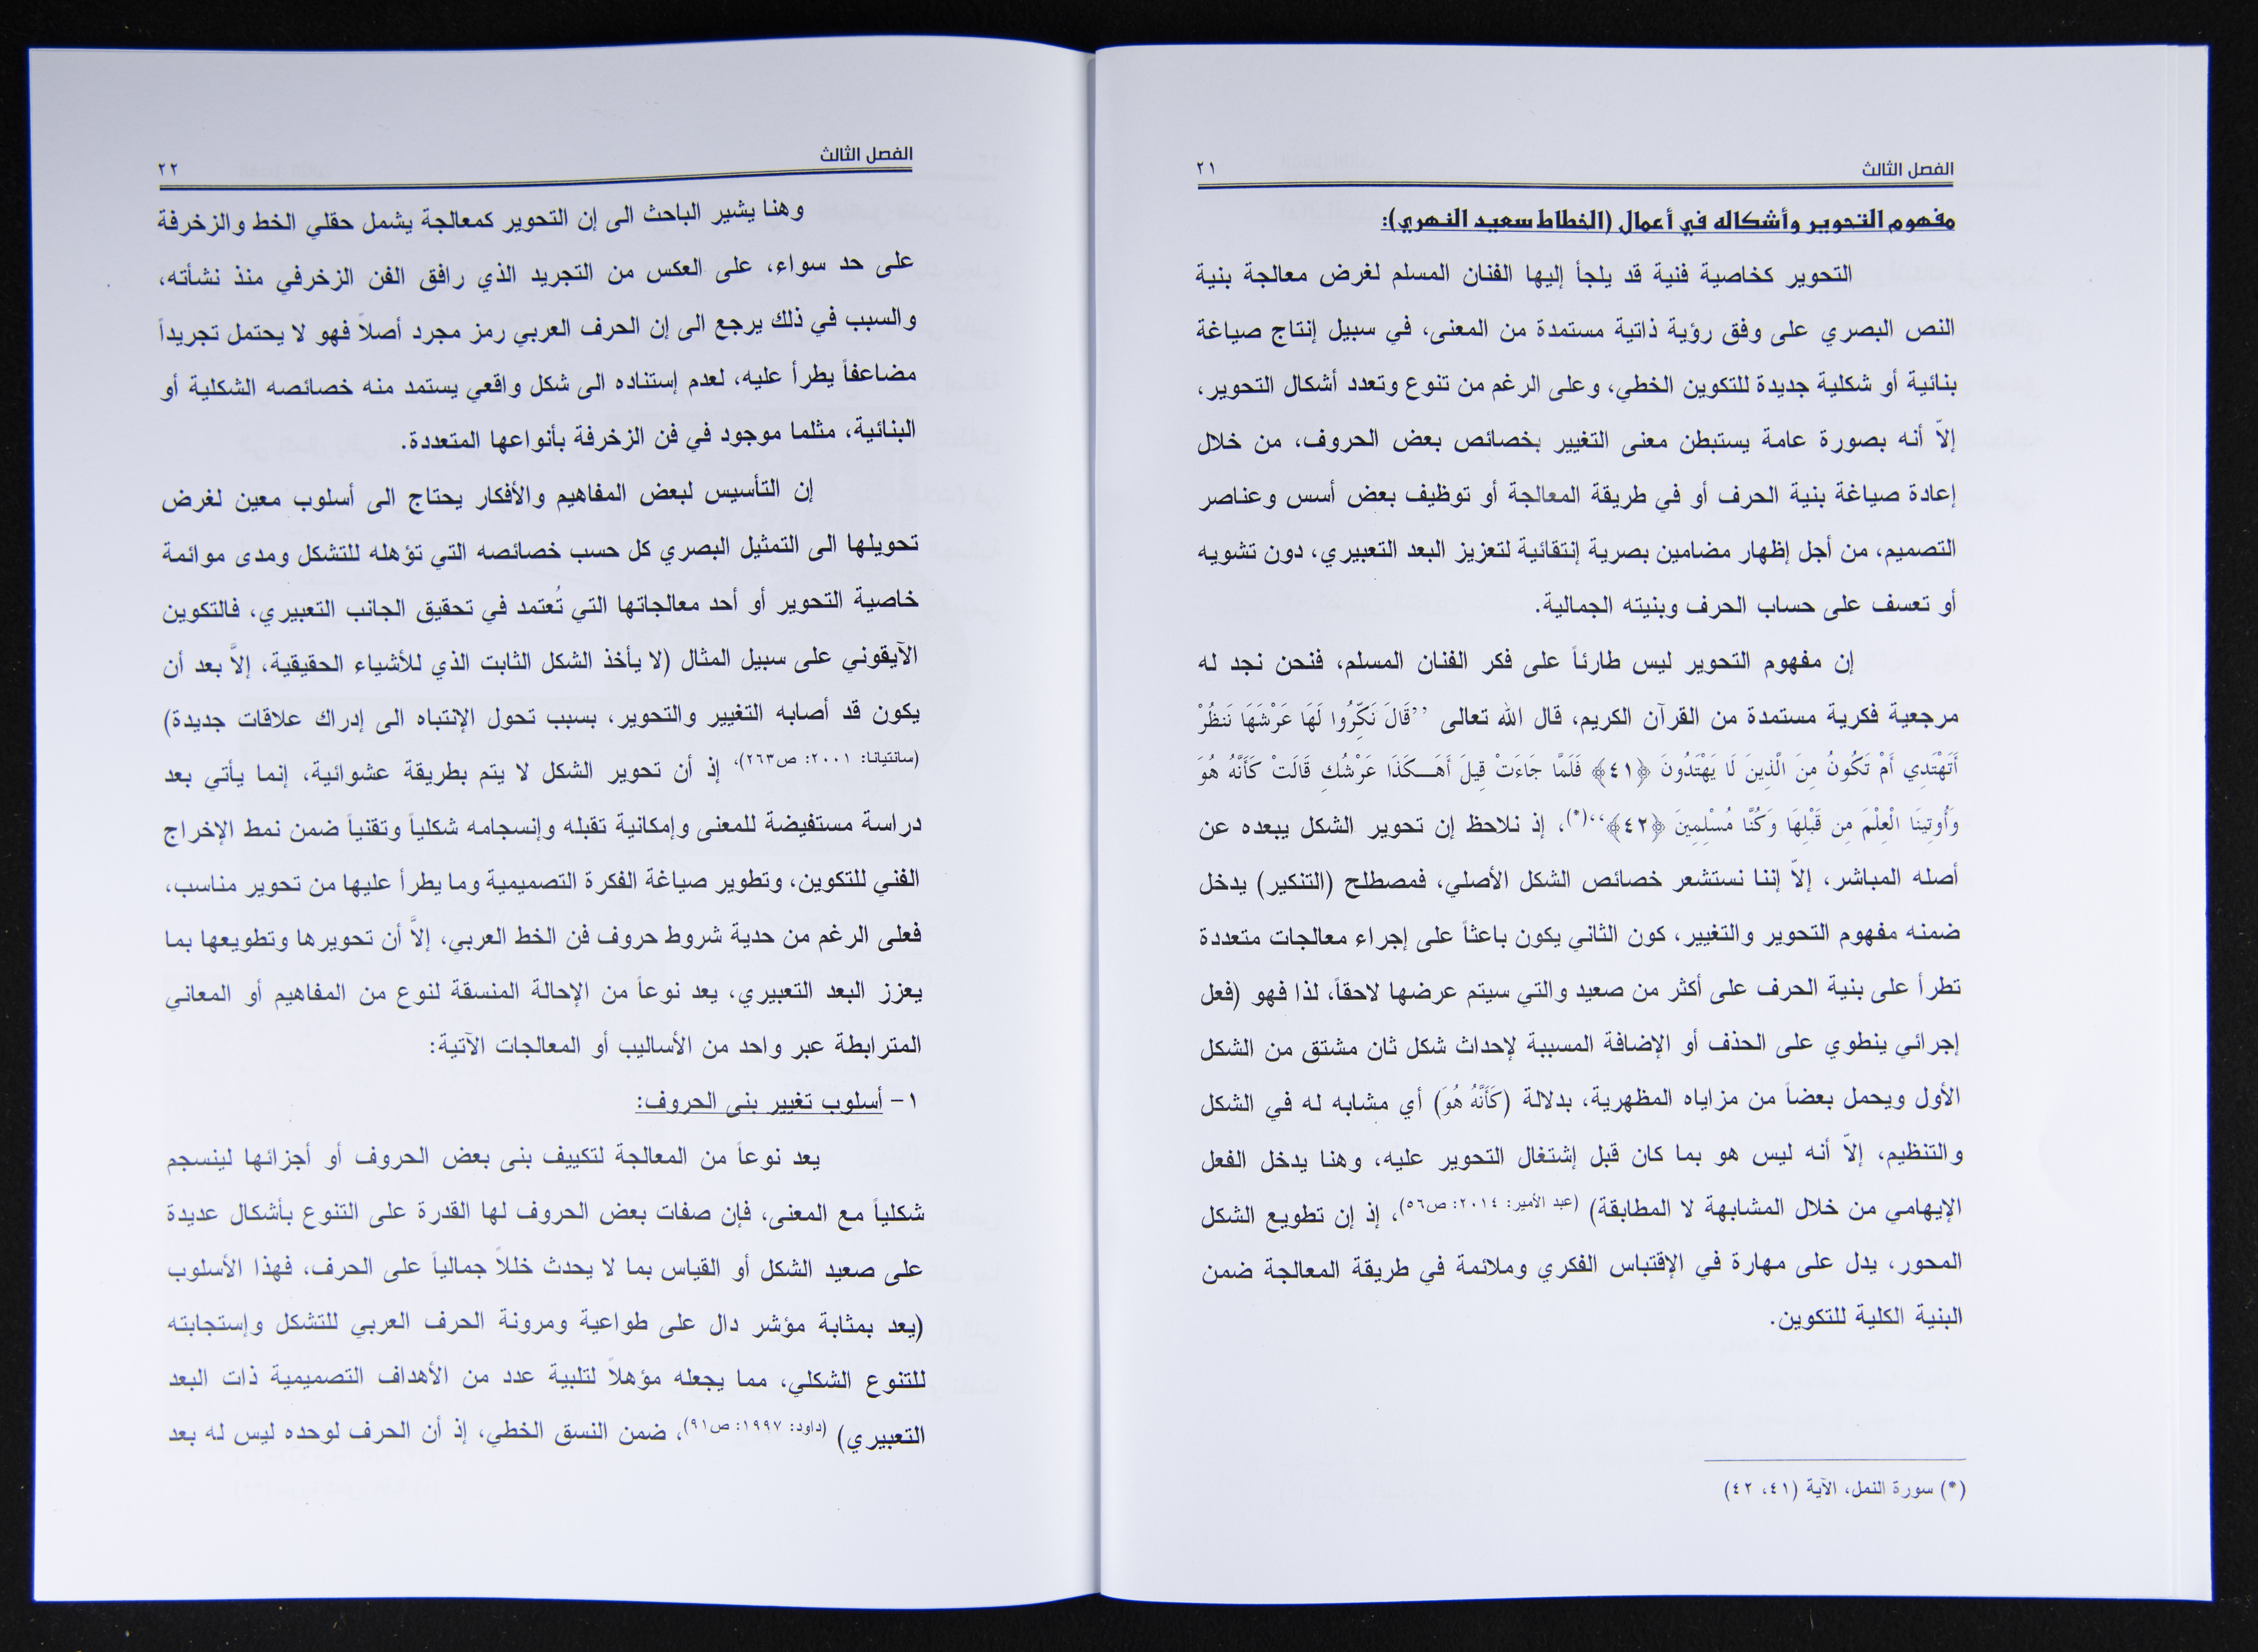 الفصل الثالث ٢١
مفهوم التحوير وأشكاله في أعمال (الخطاط سعيد النهري):
التحوير كخاصية فنية قد يلجأ إليها الفنان المسلم لغرض معالجة بنية
النص البصري على وفق رؤية ذاتية مستمدة من المعنى، في سبيل إنتاج صياغة
بنائية أو شكلية جديدة للتكوين الخطي، وعلى الرغم من تنوع وتعدد أشكال التحوير،
إلاّ أنه بصورة عامة يستبطن معنى التغيير بخصائص بعض الحروف، من خلال
إعادة صياغة بنية الحرف أو في طريقة المعالجة أو توظيف بعض أسس وعناصر
التصميم، من أجل إظهار مضامين بصرية إنتقائية لتعزيز البعد التعبيري، دون تشويه
أو تعسف على حساب الحرف وبنيته الجمالية.
إن مفهوم التحوير ليس طارئاً على فكر الفنان المسلم، فنحن نجد له
مرجعية فكرية مستمدة من القرآن الكريم، قال الله تعالى ,,قَالَ نَكِّرُوا لَهَا عَرْشَهَا نَنظُرْ
أَتَهْتَدِي أَمْ تَكُونُ مِنَ الَّذِينَ لَا يَهْتَدُونَ ﴿٤١﴾ فَلَمَّا جَاءَتْ قِيلَ أَهَـكَذَا عَرْشُكِ قَالَتْ كَأَنَّهُ هُوَ
وَأُوتِينَا الْعِلْمَ مِن قَبْلِهَا وَكُنَّا مُسْلِمِينَ ﴿٤٢﴾،،(*)، إذ نلاحظ إن تحوير الشكل يبعده عن
أصله المباشر، إلاّ إننا نستشعر خصائص الشكل الأصلي، فمصطلح (التنكير) يدخل
ضمنه مفهوم التحوير والتغيير، كون الثاني يكون باعثاً على إجراء معالجات متعددة
تطرأ على بنية الحرف على أكثر من صعيد والتي سيتم عرضها لاحقاً، لذا فهو (فعل
إجرائي ينطوي على الحذف أو الإضافة المسببة لإحداث شكل ثان مشتق من الشكل
الأول ويحمل بعضاً من مزاياه المظهرية، بدلالة (كَأَنَّهُ هُوَ) أي مشابه له في الشكل
والتنظيم، إلاّ أنه ليس هو بما كان قبل إشتغال التحوير عليه، وهنا يدخل الفعل
الإيهامي من خلال المشابهة لا المطابقة) (عبد الأمير: ٢٠١٤: ص٥٦)، إذ إن تطويع الشكل
المحور، يدل على مهارة في الإقتباس الفكري وملائمة في طريقة المعالجة ضمن
البنية الكلية للتكوين.
(*) سورة النمل، الآية (٤١، ٤٢)
الفصل الثالث ٢٢
وهنا يشير الباحث الى إن التحوير كمعالجة يشمل حقلي الخط والزخرفة
على حد سواء، على العكس من التجريد الذي رافق الفن الزخرفي منذ نشأته،
والسبب في ذلك يرجع الى إن الحرف العربي رمز مجرد أصلاً فهو لا يحتمل تجريداً
مضاعفاً يطرأ عليه، لعدم إستناده الى شكل واقعي يستمد منه خصائصه الشكلية أو
البنائية، مثلما موجود في فن الزخرفة بأنواعها المتعددة.
إن التأسيس لبعض المفاهيم والأفكار يحتاج الى أسلوب معين لغرض
تحويلها الى التمثيل البصري كل حسب خصائصه التي تؤهله للتشكل ومدى موائمة
خاصية التحوير أو أحد معالجاتها التي تُعتمد في تحقيق الجانب التعبيري، فالتكوين
الآيقوني على سبيل المثال (لا يأخذ الشكل الثابت الذي للأشياء الحقيقية، إلاَّ بعد أن
يكون قد أصابه التغيير والتحوير، بسبب تحول الإنتباه الى إدراك علاقات جديدة)
(سانتيانا: ٢٠٠١: ص٢٦٣)، إذ أن تحوير الشكل لا يتم بطريقة عشوائية، إنما يأتي بعد
دراسة مستفيضة للمعنى وإمكانية تقبله وإنسجامه شكلياً وتقنياً ضمن نمط الإخراج
الفني للتكوين، وتطوير صياغة الفكرة التصميمية وما يطرأ عليها من تحوير مناسب،
فعلى الرغم من حدية شروط حروف فن الخط العربي، إلاَّ أن تحويرها وتطويعها بما
يعزز البعد التعبيري، يعد نوعاً من الإحالة المنسقة لنوع من المفاهيم أو المعاني
المترابطة عبر واحد من الأساليب أو المعالجات الآتية:
١- أسلوب تغيير بنى الحروف:
يعد نوعاً من المعالجة لتكييف بنى بعض الحروف أو أجزائها لينسجم
شكلياً مع المعنى، فإن صفات بعض الحروف لها القدرة على التنوع بأشكال عديدة
على صعيد الشكل أو القياس بما لا يحدث خللاً جمالياً على الحرف، فهذا الأسلوب
(يعد بمثابة مؤشر دال على طواعية ومرونة الحرف العربي للتشكل وإستجابته
للتنوع الشكلي، مما يجعله مؤهلاً لتلبية عدد من الأهداف التصميمية ذات البعد
التعبيري) (داود: ١٩٩٧: ص٩١)، ضمن النسق الخطي، إذ أن الحرف لوحده ليس له بعد